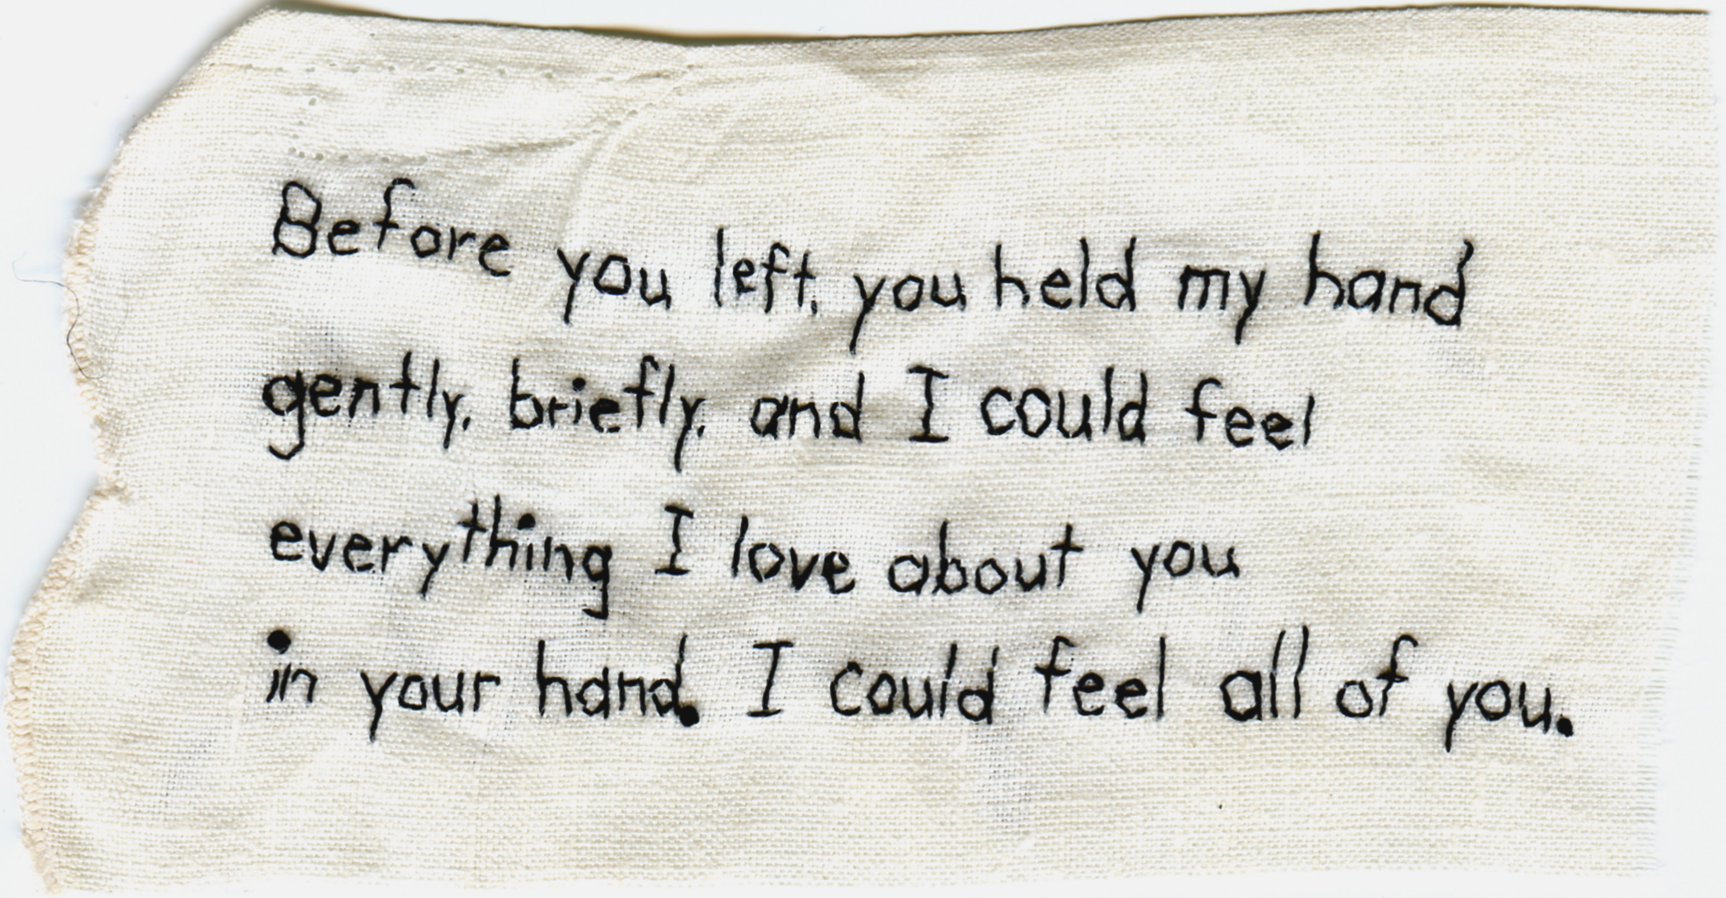 Before you left, you held my hand
gently, briefly, and I could feel
everything I love about you
in your hand. I could feel all of you.